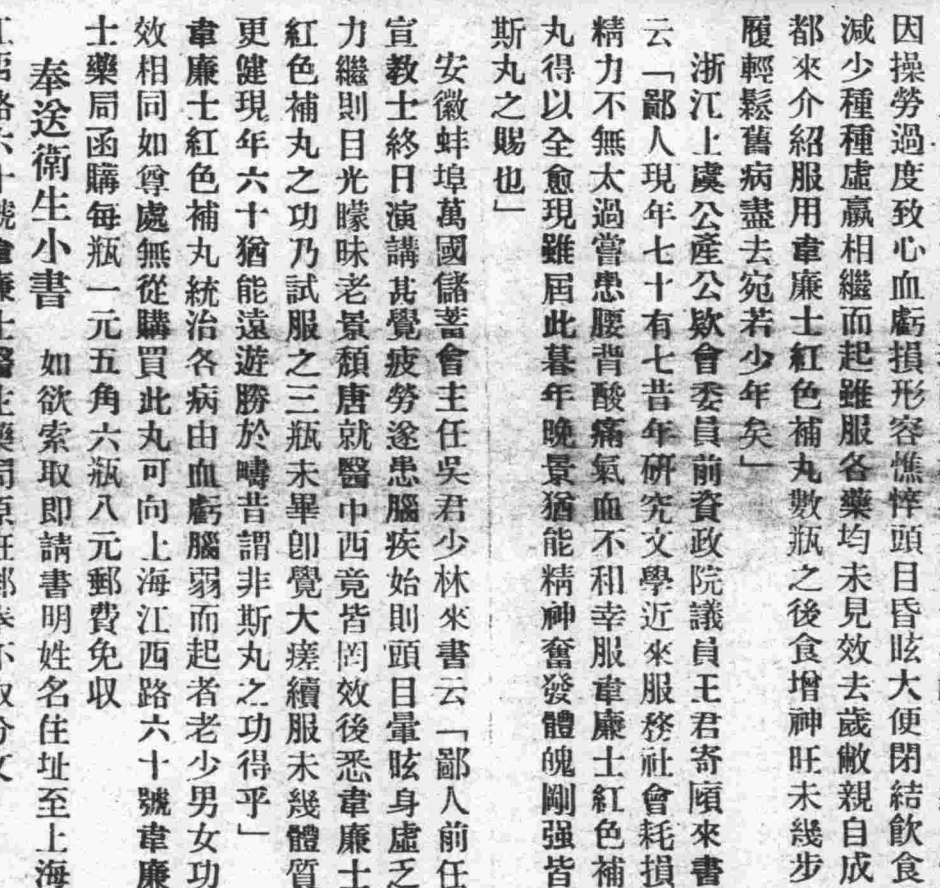 因操勞過度致心血虧損形容憔悴頭目昏眩大便閉結飲食
減少種種虛羸相繼而起雖服各藥均未見效去歲敝親自成
都來介紹服用韋廉士紅色補丸數瓶之後食增神旺未幾步
履輕鬆舊病盡去宛若少年矣」
浙江上虞公產公欵會委員前資政院議員王君寄廎來書
云「鄙人現年七十有七昔年研究文學近來服務社會耗損
精力不無太過嘗患腰背酸痛氣血不和幸服韋廉士紅色補
丸得以全愈現雖屆此暮年晚景猶能精神奮發體魄剛强皆
斯丸之賜也」
安徽蚌埠萬國儲蓄會主任吳君少林來書云「鄙人前任
宣教士終日演講甚覺疲勞遂患腦疾始則頭目暈眩身虛乏
力繼則目光矇昧老景頹唐就醫中西竟皆罔效後悉韋廉士
紅色補丸之功乃試服之三瓶未畢卽覺大瘥續服未幾體質
更健現年六十猶能遠遊勝於疇昔謂非斯丸之功得乎」
韋廉士紅色補丸統治各病由血虧腦弱而起者老少男女功
效相同如尊處無從購買此丸可向上海江西路六十號韋廉
士藥局函購每瓶一元五角六瓶八元郵費免収
奉送衛生小書 如欲索取即請書明姓名住址至上海
江西路六十號韋廉士醫生藥局原班郵奉不取分文